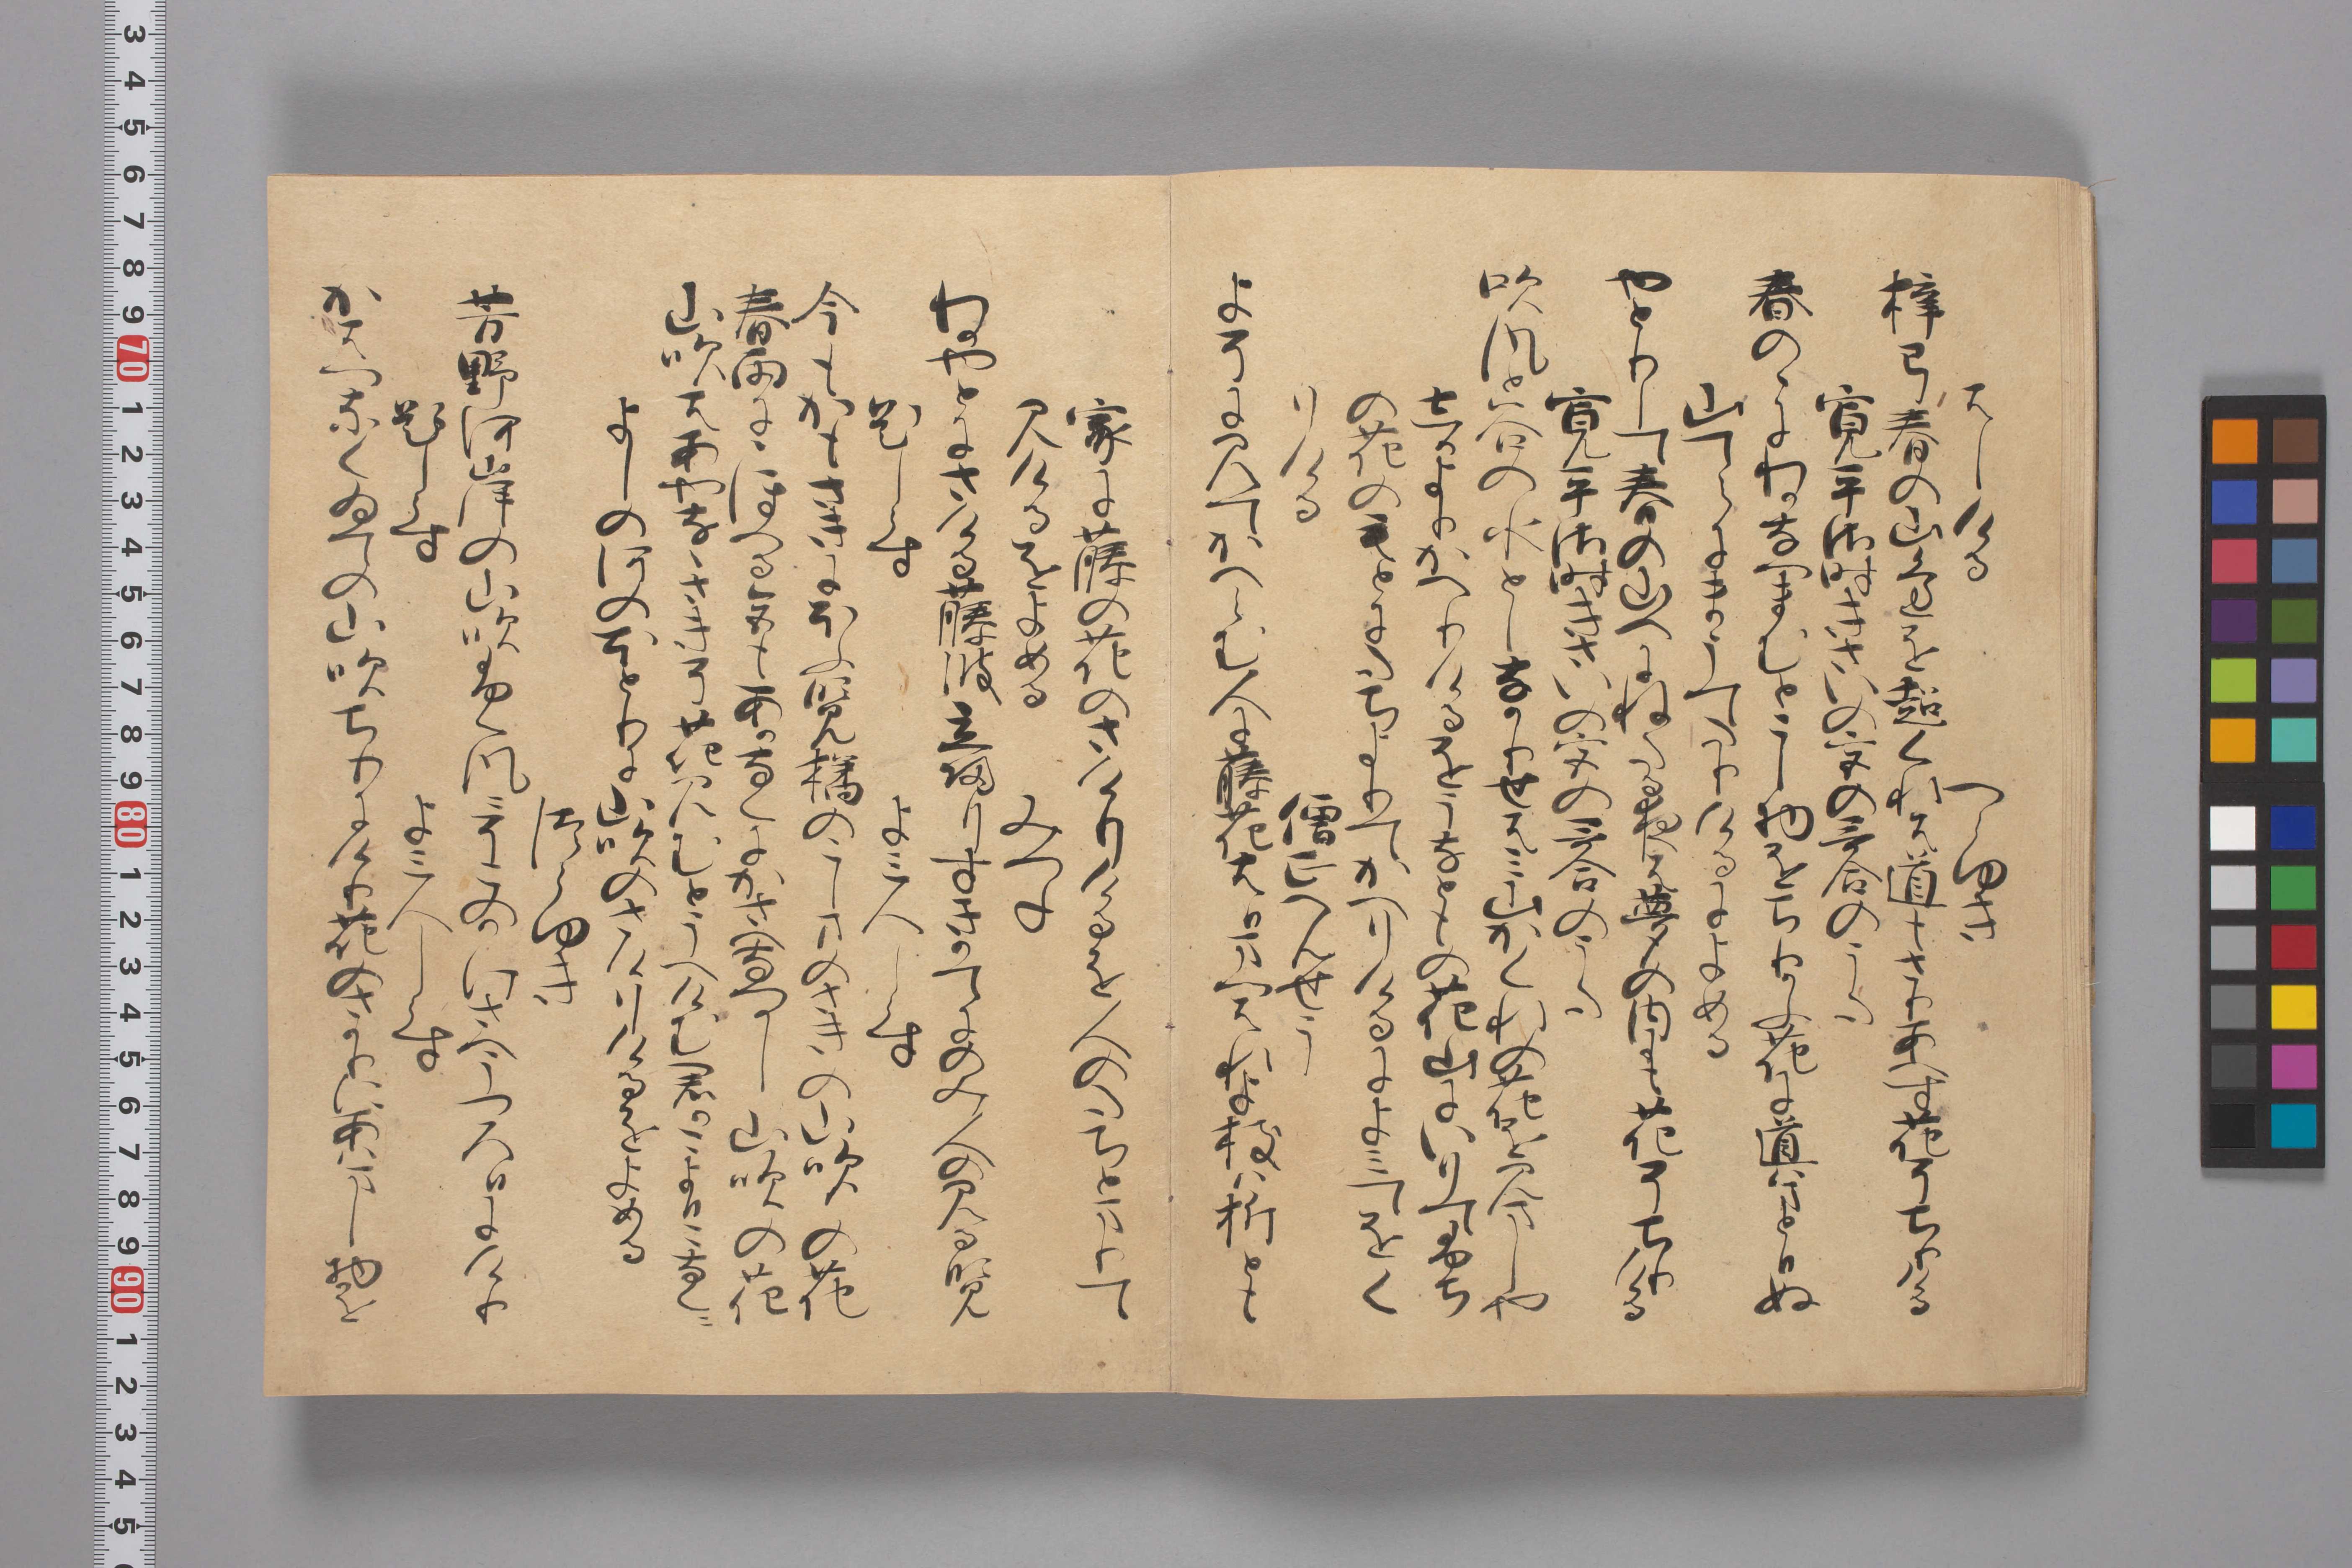 はしける　つらゆき
梓弓春の山邊を越くれは道もさりあへす花そちりける
寛平御時きさいの宮の哥合のうた
春のゝにわかなつまむとこしものをちりかふ花に道はまとひぬ
山てらにまうてたりけるによめる
やとりして春の山へにねたる夜は夢の内にも花そちりける
寛平御時きさいの宮の哥合のうた
吹風と谷の水としなかりせはみ山かくれの花を見ましや
しかよりかへりけるをうなともの花山にいりてふち
の花のもとにたちよりてかへりけるによみてをく
りける　僧正へんせう
よそに見てかへらむ人に藤花はひまつはれよ枝はおるとも
家に藤の花のさけりけるを人のたちとまりて
見けるをよめる　みつね
わかやとにさける藤波立帰すきかてにのみ人の見る覧
題しらす　よみ人しらす
今もかもさき匂覧橘のこしまのさきの山吹の花
春雨ににほへる色もあかなくに香さへなつかし山吹の花
山吹はあやなゝさきそ花見むとうへけむ君かこよひこなくに
よしの河のほとりに山吹のさけりけるをよめる
つらゆき
芳野河岸の山吹ふく風にそこの影さへうつろひにけり
題しらす　よみ人しらす
かはつなくゐての山吹ちりにけり花のさかりにあはまし物を